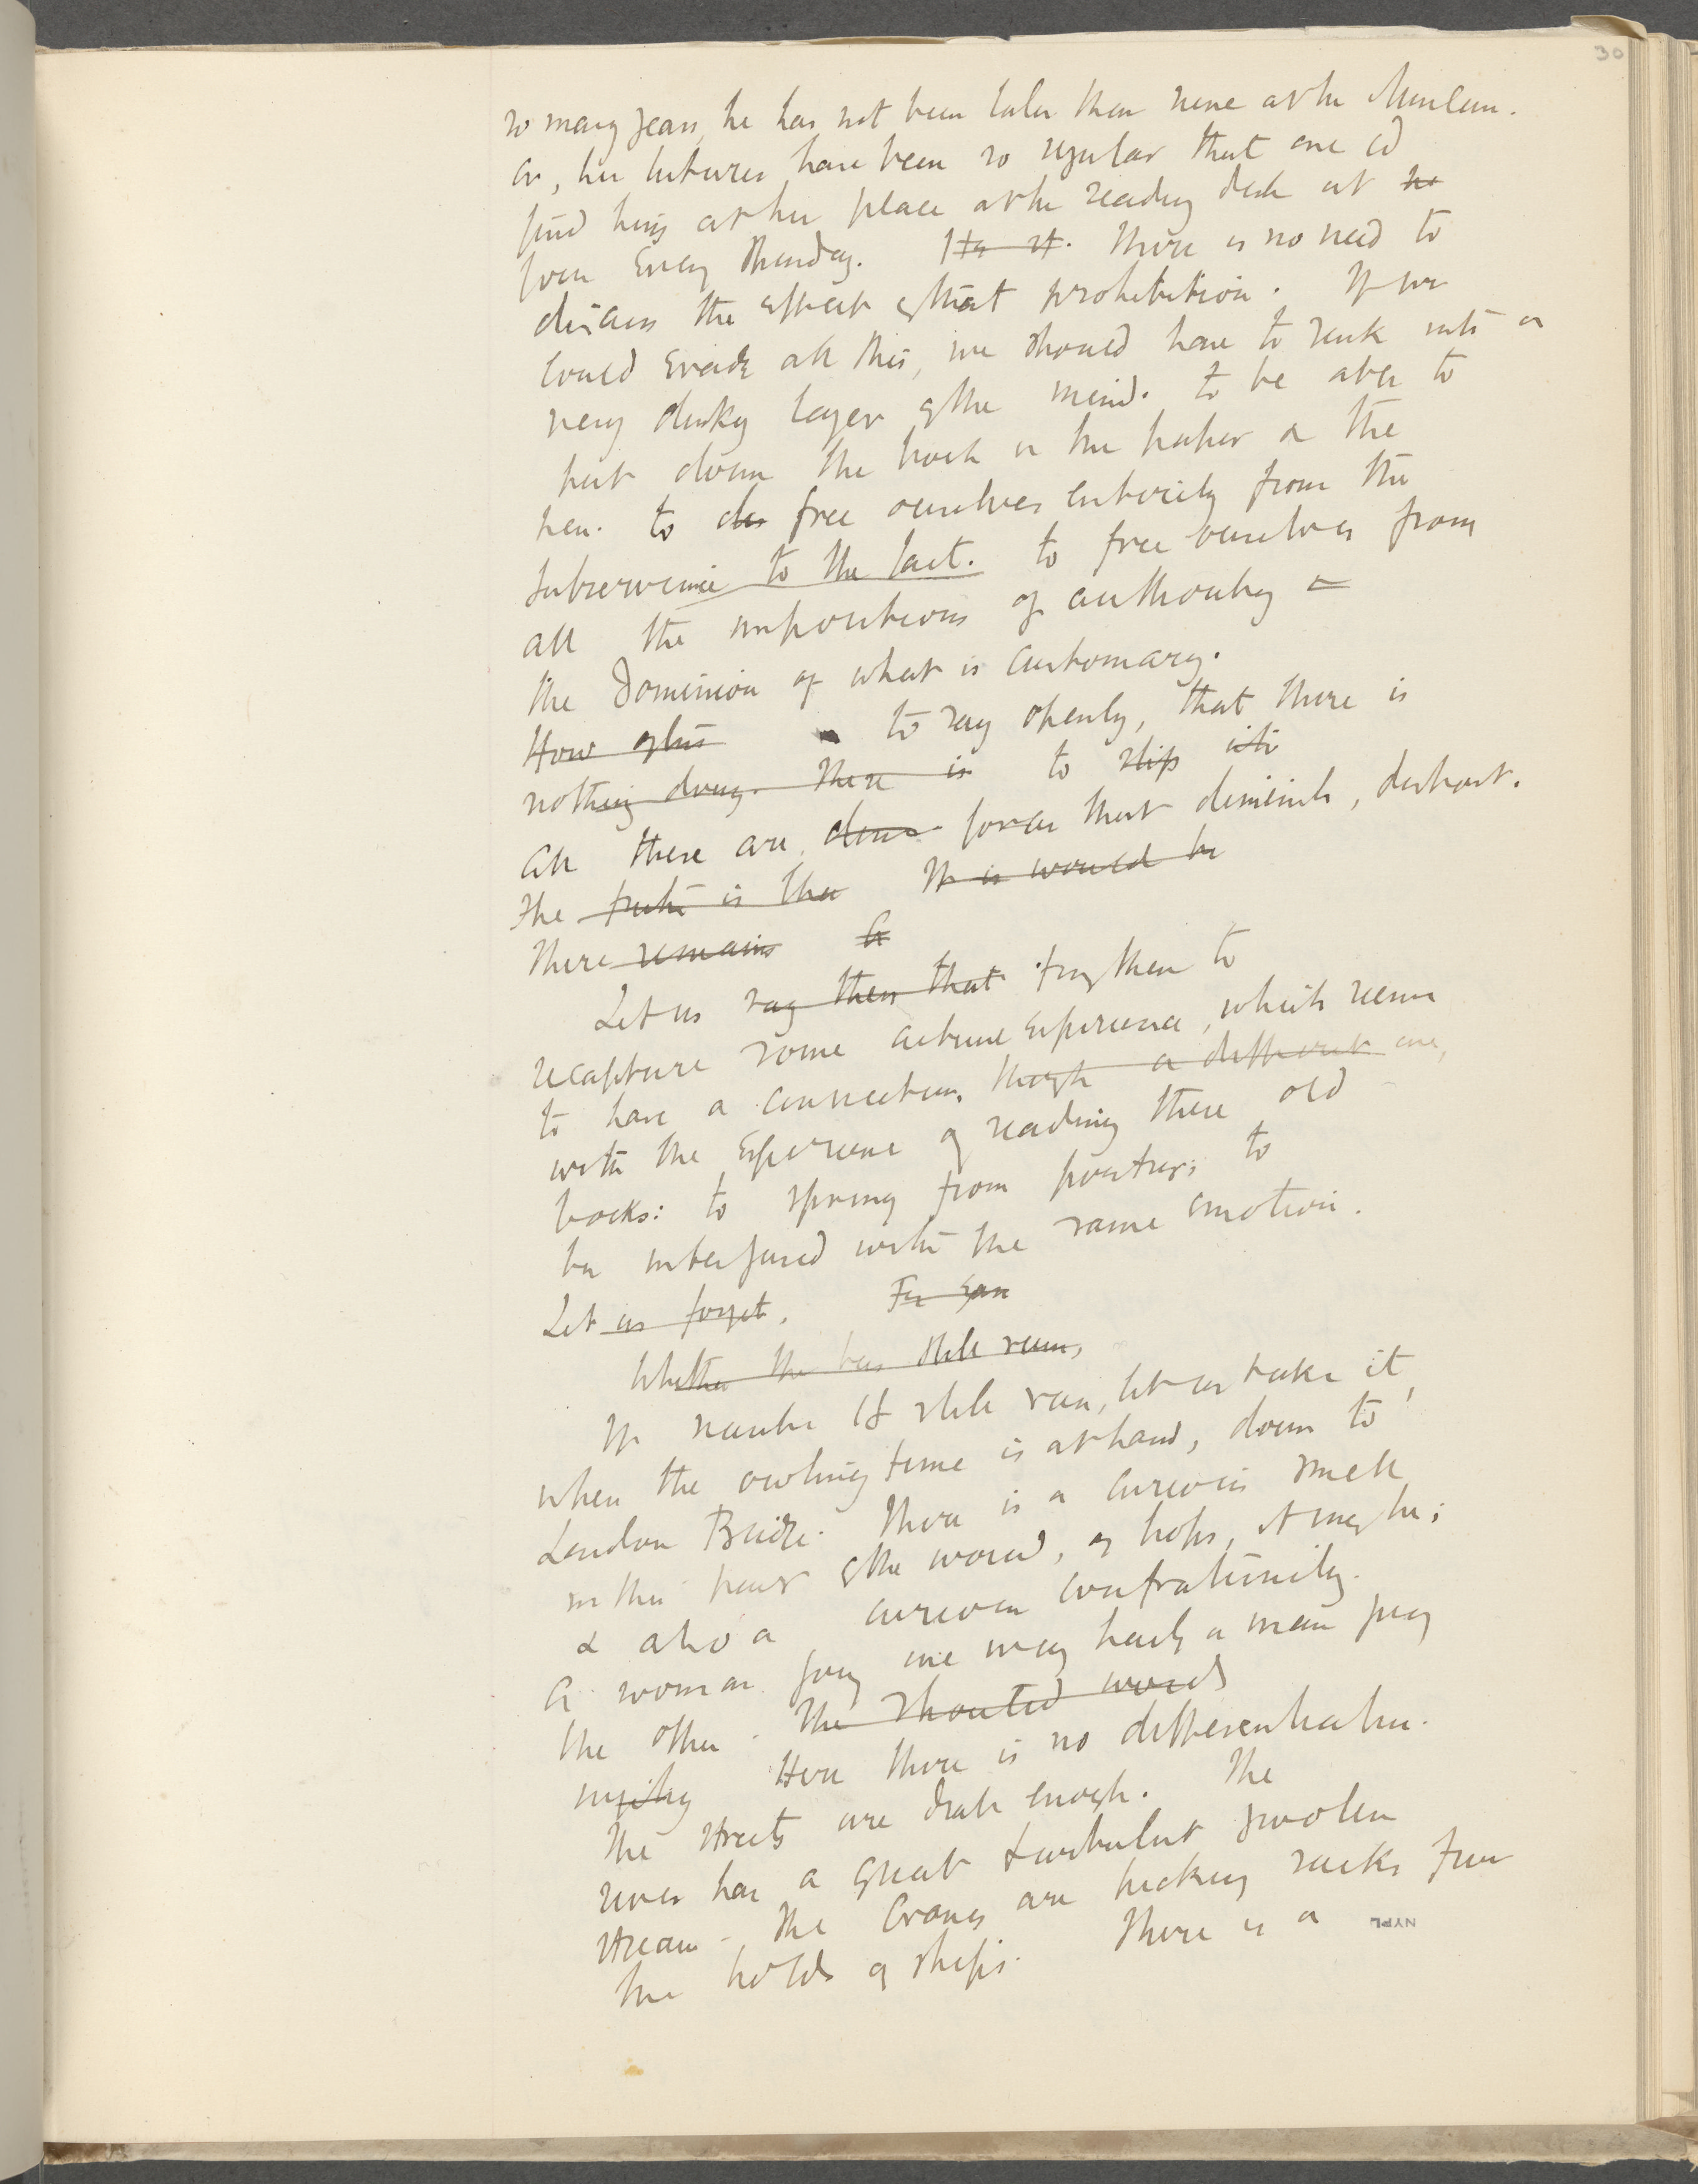 30
so many years, he has not been later than nine at the Museum.
Or, her lectures have been so regular that one cd
find him at her place at the reading desk at no
four Every Thursday. Its it. There is no need to
discuss the effect of that prohibition. If we
could Evade all this, we should have to sink into a
very dusky layer of the mind. to be able to
put down the book or the paper or the
pen. to des free ourselves entirely from the
subservience to the fact. to free ourselves from
all the impositions of authority –
the Dominion of what is customary.
How to say openly, that there is
nothing doing. There is to slip into
All these are forces that diminish,
The truth is tha It is would be
There remains A
Let us say then that try then to
recapture some actual Experience, which seems
to have a connection, though a different one,
with the Experience of reading these old
books: to spring from poetry; to
be interfused with the same emotion.
Let us forget.
Whether the bus still runs,
If number 15 still ran, let us take it,
when the owling time is at hand, down to
London Bridge. There is a curious smell
in this part of the world, of hops, it may be;
& also a curious confraternity.
A woman from one way hails a man from
the other. The shouted words
Here there is no differentiation.
The streets are drab enough. The
river has a great turbulent swollen
stream. The Cranes are picking sacks from
the holds of ships. There is a
NYPL